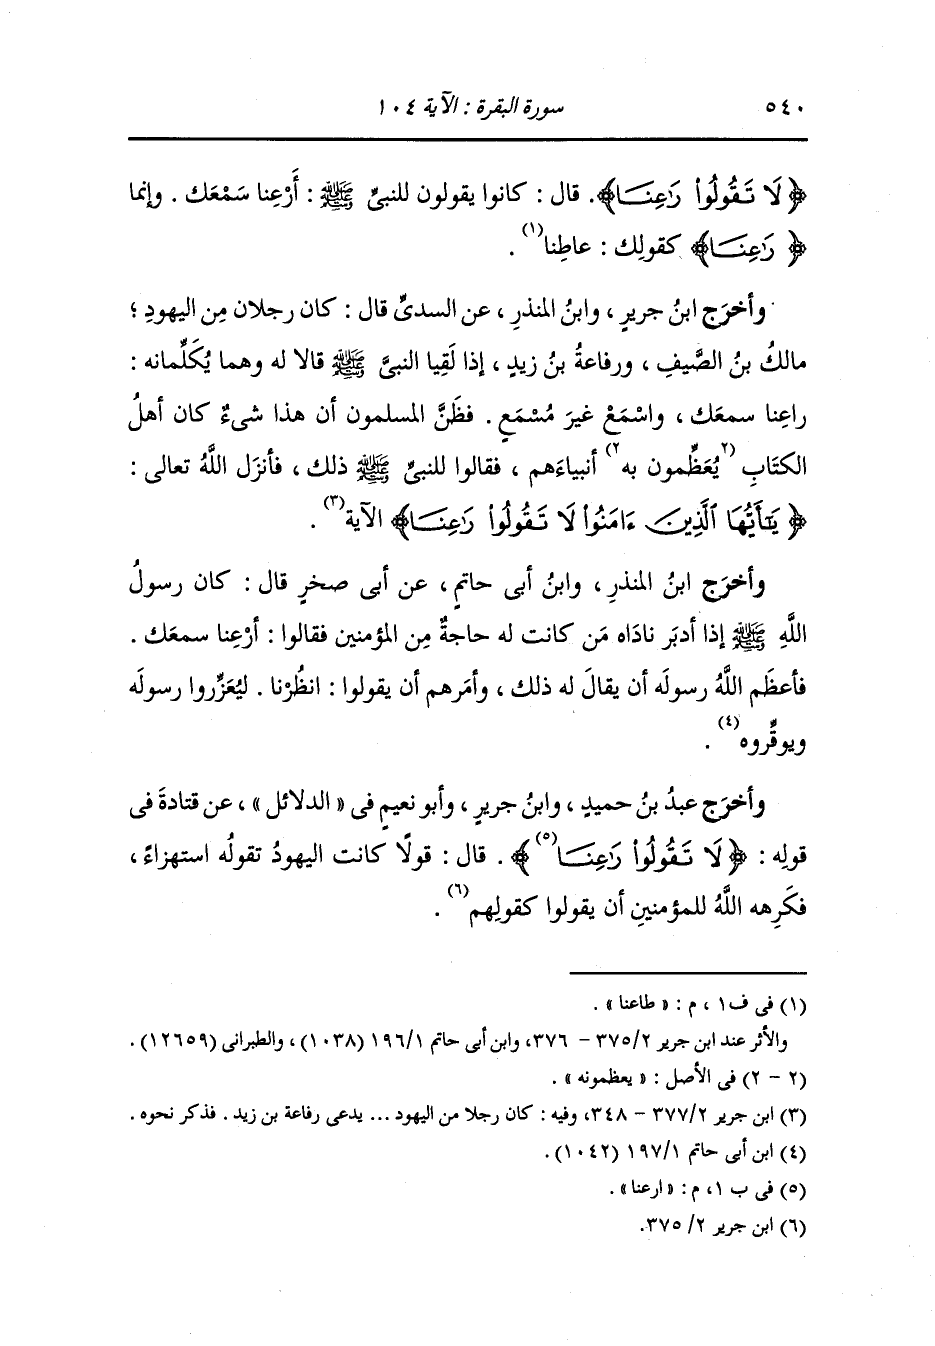 ٥٤٠ سورة البقرة : الآية ١٠٤
﴿لَا تَقُولُوا۟ رَٰعِنَا﴾. قال : كانوا يقولون للنبىِّ ﷺ : أَرْعِنا سَمْعَك . وإنما
﴿ رَٰعِنَا﴾ كقولِك : عاطِنا(١) .
وأخرَج ابنُ جريرٍ ، وابنُ المنذرِ ، عن السدىِّ قال : كان رجلان مِن اليهودِ ؛
مالكُ بنُ الصَّيفِ ، ورفاعةُ بنُ زيدٍ ، إذا لَقِيا النبىَّ ﷺ قالا له وهما يُكَلِّمانه :
راعِنا سمعَك ، واسْمَعْ غيرَ مُسْمَعٍ . فظَنَّ المسلمون أن هذا شىءٌ كان أهلُ
الكتَابِ (٢يُعَظِّمون به٢) أنبياءَهم ، فقالوا للنبىِّ ﷺ ذلك ، فأنزَل اللَّهُ تعالى :
﴿ يَٰٓأَيُّهَا ٱلَّذِينَ ءَامَنُوا۟ لَا تَقُولُوا۟ رَٰعِنَا﴾ الآية(٣) .
وأخرَج ابنُ المنذرِ ، وابنُ أبى حاتمٍ ، عن أبى صخرٍ قال : كان رسولُ
اللَّهِ ﷺ إذا أدبَر نادَاه مَن كانت له حاجةٌ مِن المؤمنين فقالوا : أرْعِنا سمعَك .
فأعظَم اللَّهُ رسولَه أن يقالَ له ذلك ، وأمَرهم أن يقولوا : انظُرْنا . ليُعَزِّروا رسولَه
ويوقِّروه(٤) .
وأخرَج عبدُ بنُ حميدٍ ، وابنُ جريرٍ ، وأبو نعيمٍ فى « الدلائل » ، عن قتادةَ فى
قولِه : ﴿لَا تَقُولُوا۟ رَٰعِنَا(٥)﴾ . قال : قولًا كانت اليهودُ تقولُه استهزاءً ،
فكَرِهه اللَّهُ للمؤمنينِ أن يقولوا كقولِهم(٦) .
(١) فى ف١ ، م : « طاعنا » .
والأثر عند ابن جرير ٣٧٥/٢ – ٣٧٦، وابن أبى حاتم ١٩٦/١ (١٠٣٨) ، والطبرانى (١٢٦٥٩) .
(٢ – ٢) فى الأصل : « يعظمونه » .
(٣) ابن جرير ٣٧٧/٢ – ٣٤٨، وفيه : كان رجلا من اليهود ... يدعى رفاعة بن زيد . فذكر نحوه .
(٤) ابن أبى حاتم ١٩٧/١ (١٠٤٢) .
(٥) فى ب ١، م : « ارعنا» .
(٦) ابن جرير ٢/ ٣٧٥.